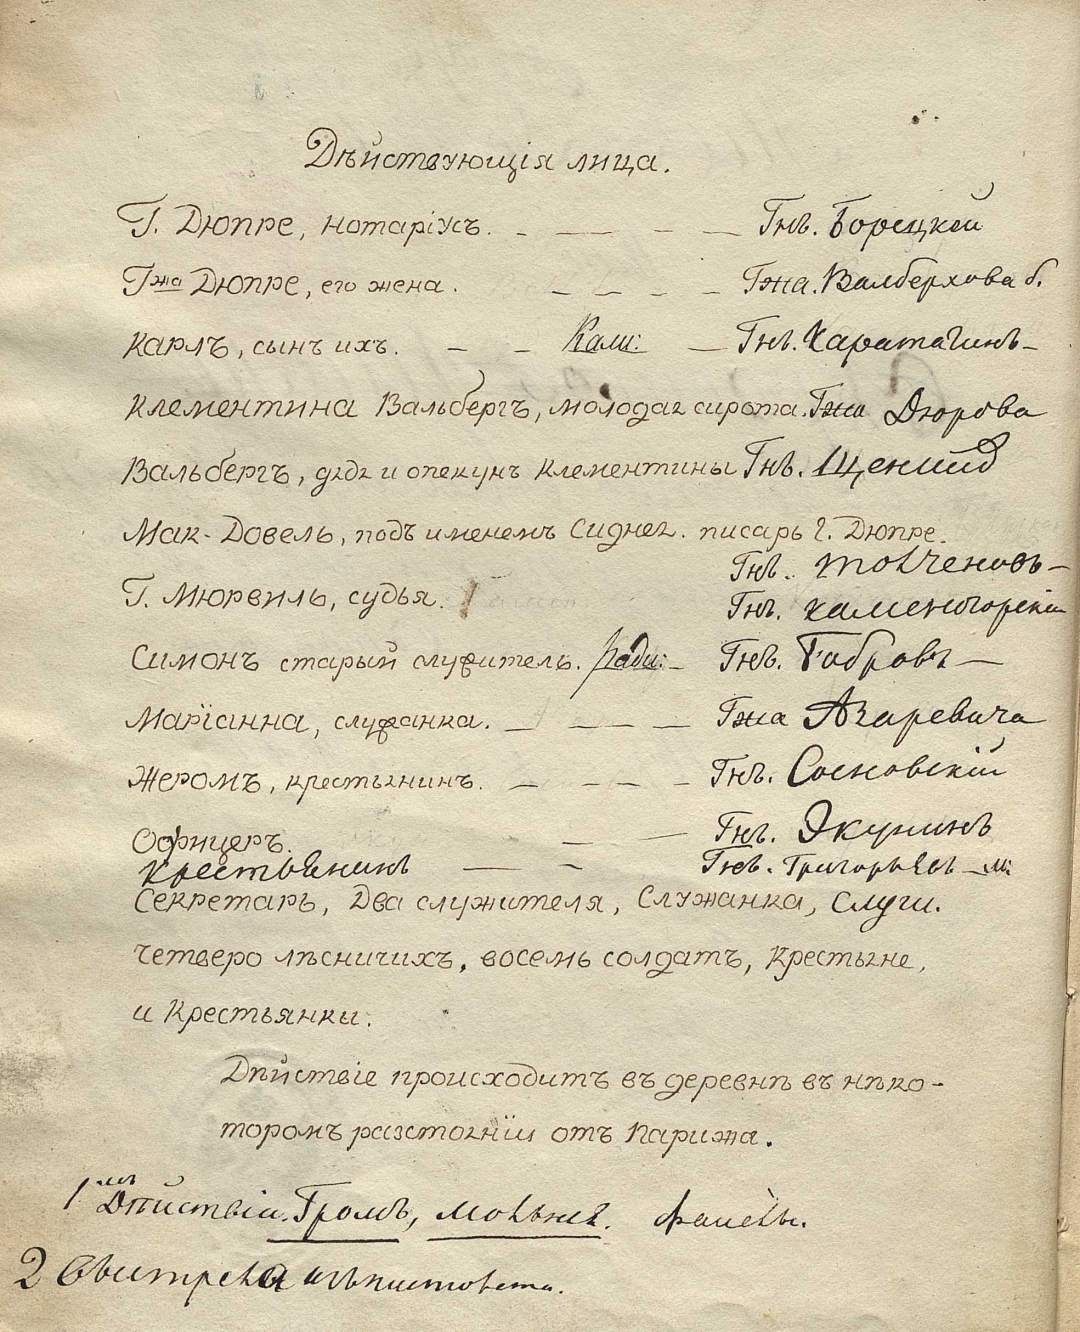 Дѣйствующія лица.
Г. Дюпре, нотаріусъ. - — — - — Гнъ. Борецкой
Гжа Дюпре, его жена. — — - — Гжа. Валберхова б.
Карлъ, сынъ ихъ. — - Кам: — Гнъ. Каратагинъ -
Клементина Вальбергъ, молодая сирота. Гжа Дюрова
Вальбергъ, дядя и опекунъ Клементины Гнъ. Щенниковъ
Мак-Довель, подъ именемъ Сиднея. писарь Г. Дюпре.
Гнъ. Толченовъ -
Г. Мюрвиль, судья. Гнъ. Каменогорскій
Симонъ старый служитель. Ради: - Гнъ. Бобровъ —
Маріанна, служанка. — — — - Гжа Азаревича
Жеромъ, крестьянинъ. — — — - Гнъ. Сосновскій
Офицеръ. — — Гнъ. Экунинъ
крестьянинъ — - Гнъ. Григорьевъ - м:
Секретарь, Два служителя, Служанка, Слуги.
четверо лѣсничихъ, восемь солдатъ, Крестьяне,
и Крестьянки.
Дѣйствіе происходитъ въ деревнѣ въ нѣко-
торомъ разстояніи отъ Парижа.
1мъ Дѣйствіи. Громъ, молнья. факелы.
2 Выстрела изъ пистолета.